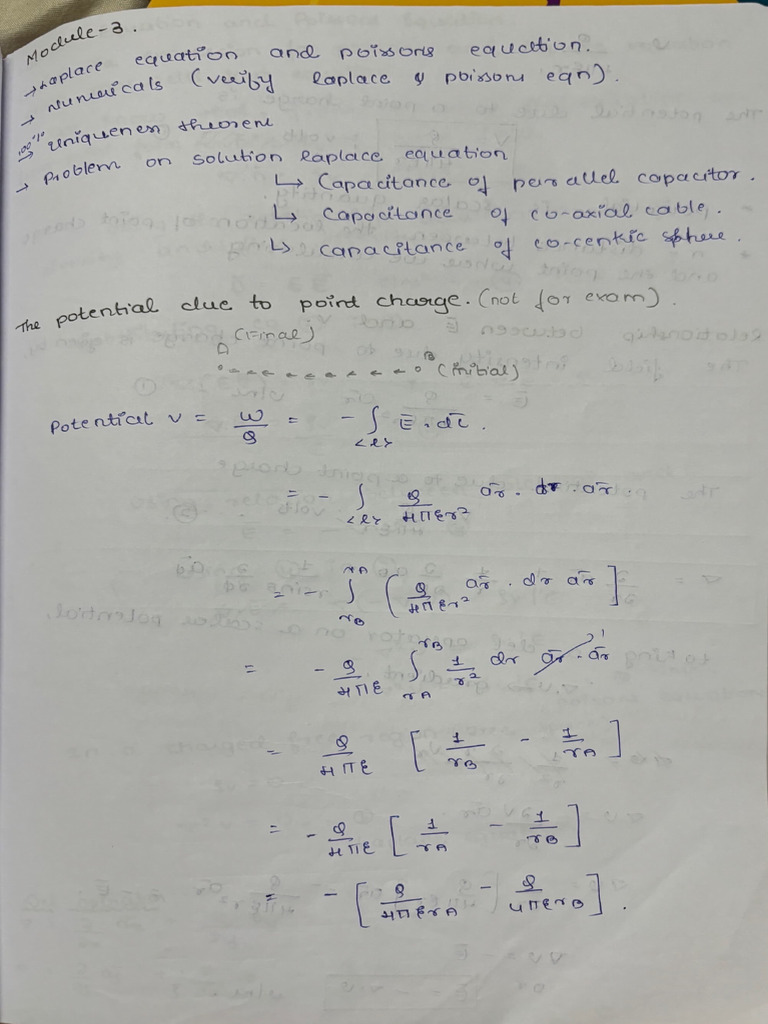 Module-3.
→ Laplace equation and poissons equation.
→ Numericals (verify Laplace & poissons eqn).
100% → Uniqueness theorem
→ Problem on solution Laplace equation
↳ Capacitance of parallel capacitor.
↳ Capacitance of co-axial cable.
↳ Capacitance of co-centric sphere.
The potential due to point charge. (not for exam).
A (Final)
B (initial)
Potential V = W/Q = - ∫<l> E̅ . dl̅ .
= - ∫<l> Q/4πεr² a̅r . dr . a̅r .
= - ∫rB^rA ( Q/4πεr² a̅r . dr a̅r ]
= - Q/4πε ∫rA^rB 1/r² dr a̅r . a̅r 1
= Q/4πε [ 1/rB - 1/rA ]
= - Q/4πε [ 1/rA - 1/rB ]
= - [ Q/4πεrA - Q/4πεrB ] .